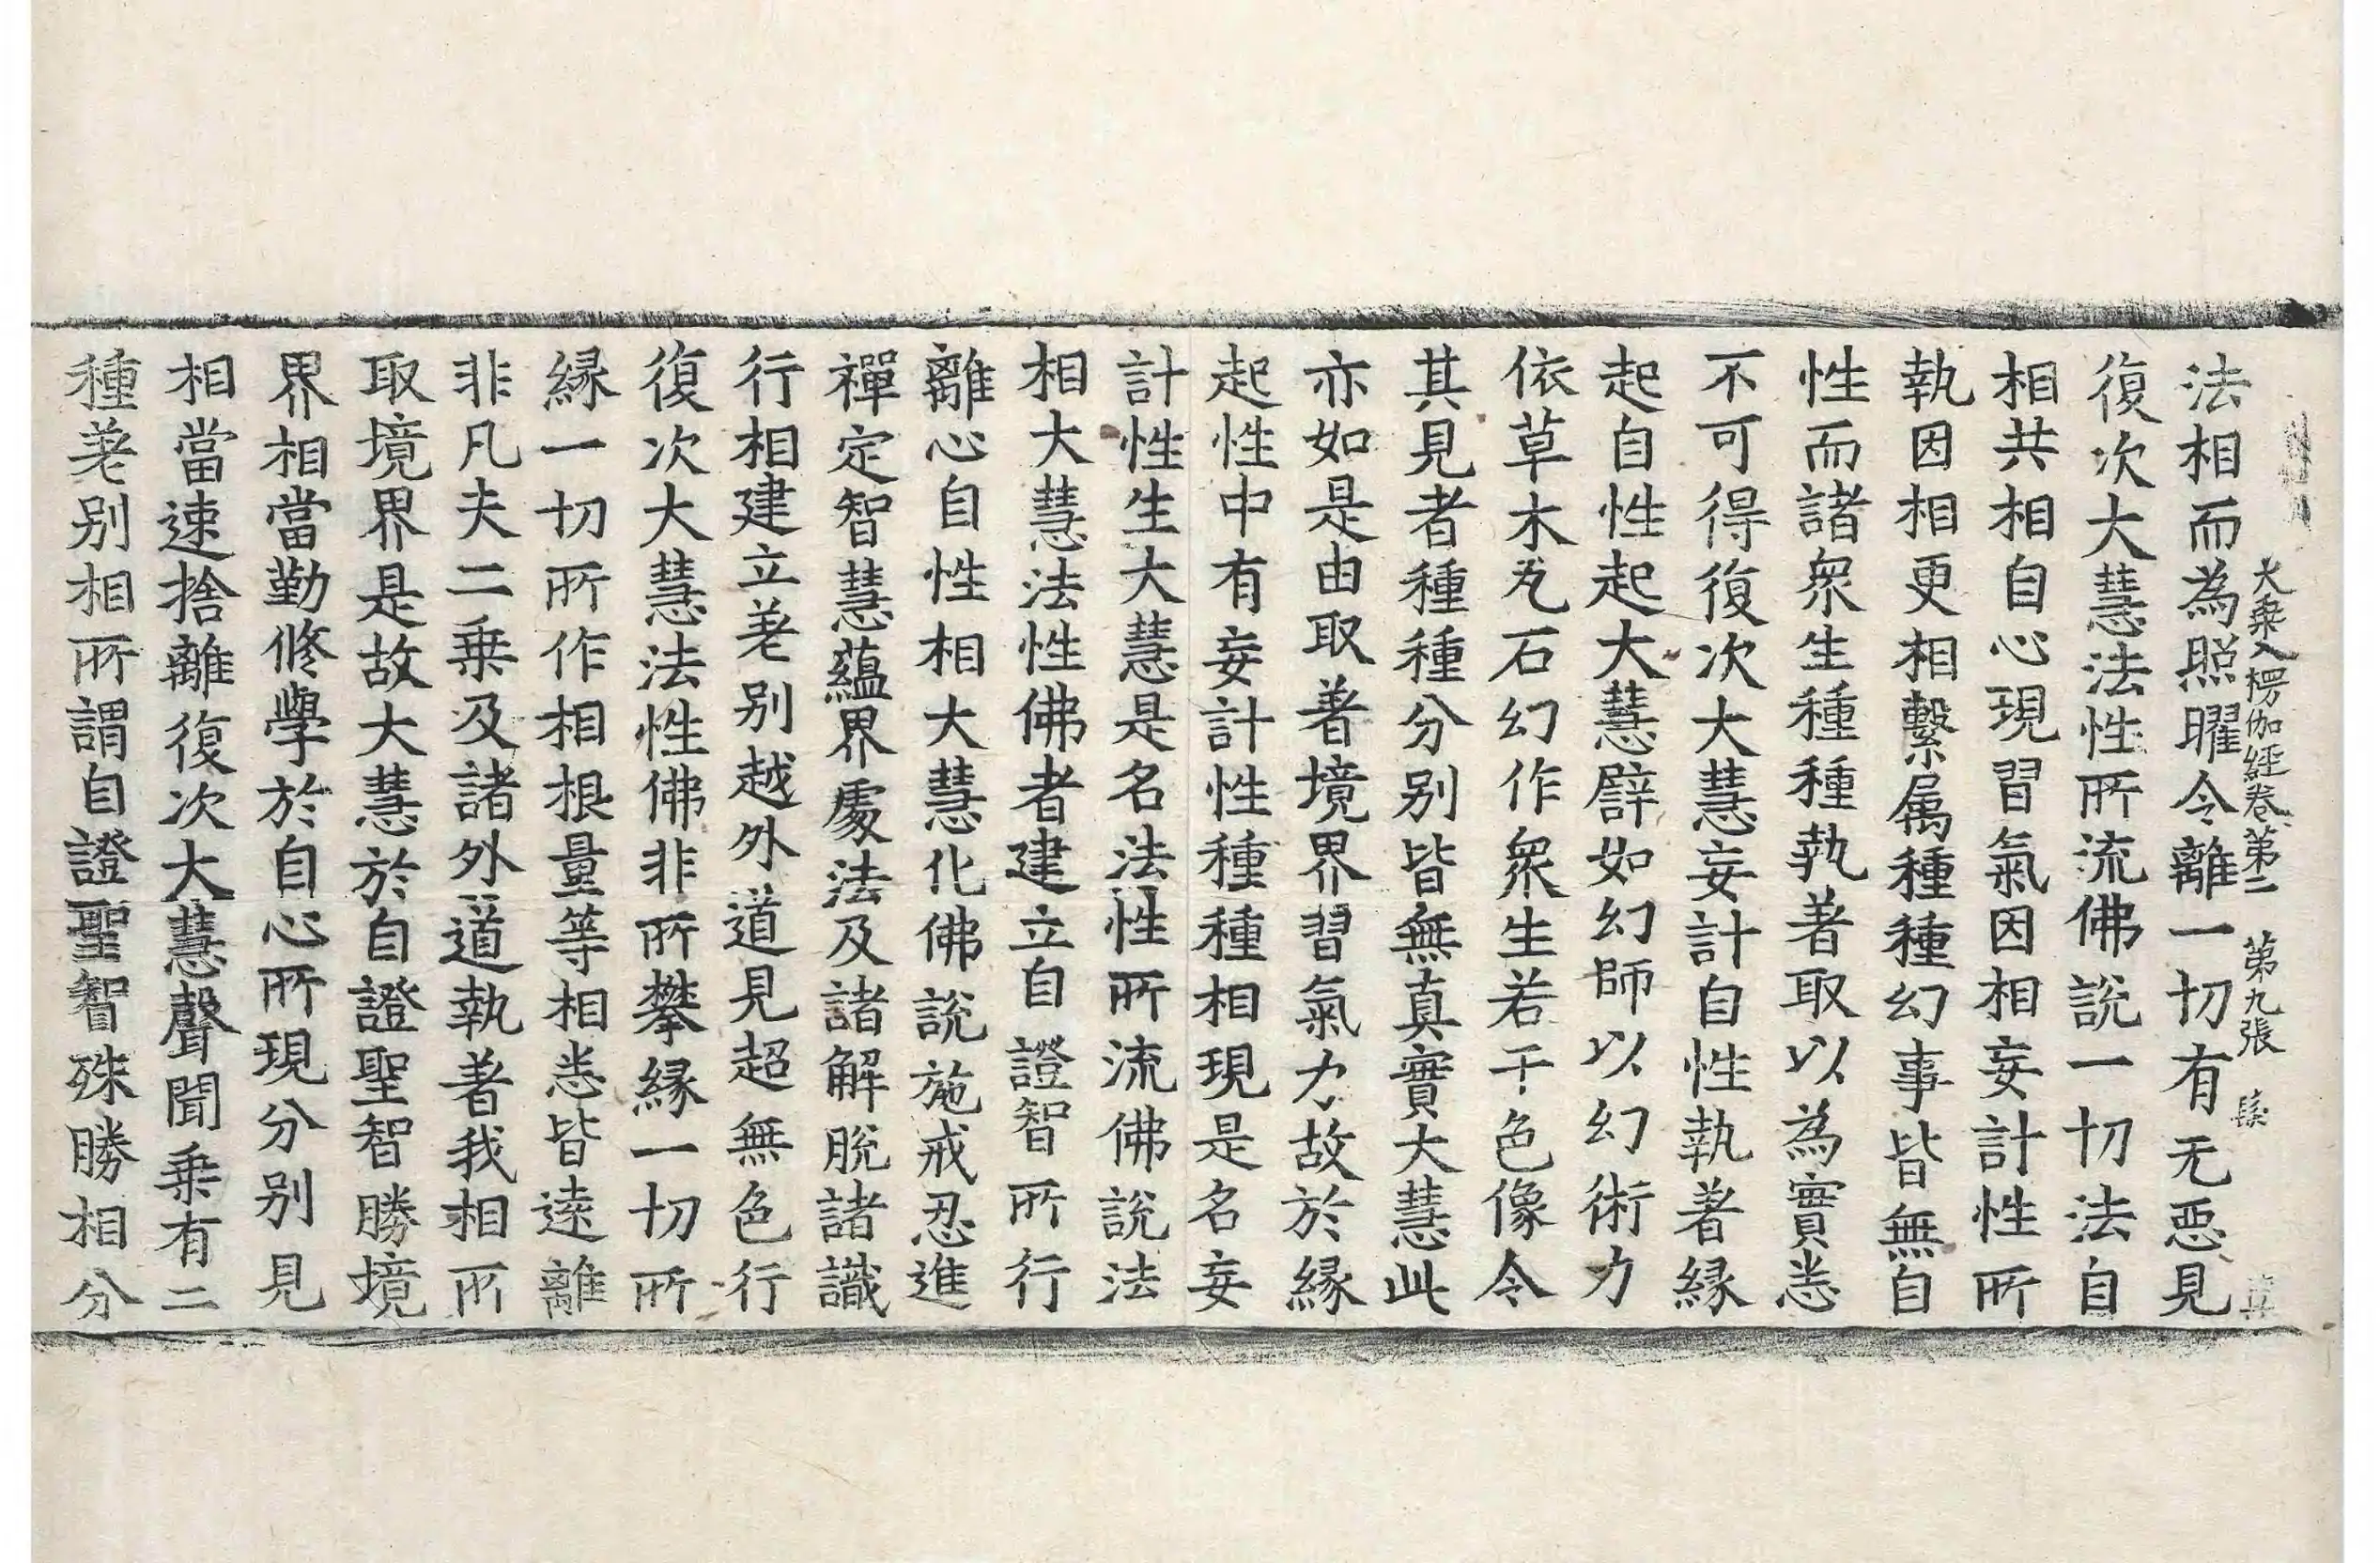 大乗入楞伽経卷第二 第九張 髮
法相而為照曜令離一切有无惡見
復次大慧法性所流佛說一切法自
相共相自心現習氣因相妄計性所
執因相更相繫属種種幻事皆無自
性而諸衆生種種執著取以為實悉
不可得復次大慧妄計自性執著縁
起自性起大慧譬如幻師以幻術力
依草木瓦石幻作衆生若干色像令
其見者種種分别皆無真實大慧此
亦如是由取著境界習氣力故於縁
起性中有妄計性種種相現是名妄
計性生大慧是名法性所流佛說法
相大慧法性佛者建立自證智所行
離心自性相大慧化佛說施戒忍進
禪定智慧蘊界處法及諸解脫諸識
行相建立差别越外道見超無色行
復次大慧法性佛非所攀縁一切所
縁一切所作相根量等相悉皆逺離
非凡夫二乗及諸外道執著我相所
取境界是故大慧於自證聖智勝境
界相當勤修學於自心所現分别見
相當速捨離復次大慧聲聞乗有二
種差别相所謂自證聖智殊勝相分